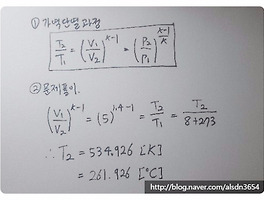 ① 가역단열과정
T₂/T₁ = (V₁/V₂)^(k-1) = (P₂/P₁)^((k-1)/k)
② 문제풀이.
(V₁/V₂)^(k-1) = (5)^(1.4-1) = T₂/T₁ = T₂/(8+273)
∴ T₂ = 534.926 [K]
= 261.926 [°C]
http://blog.naver.com/alsdn3654